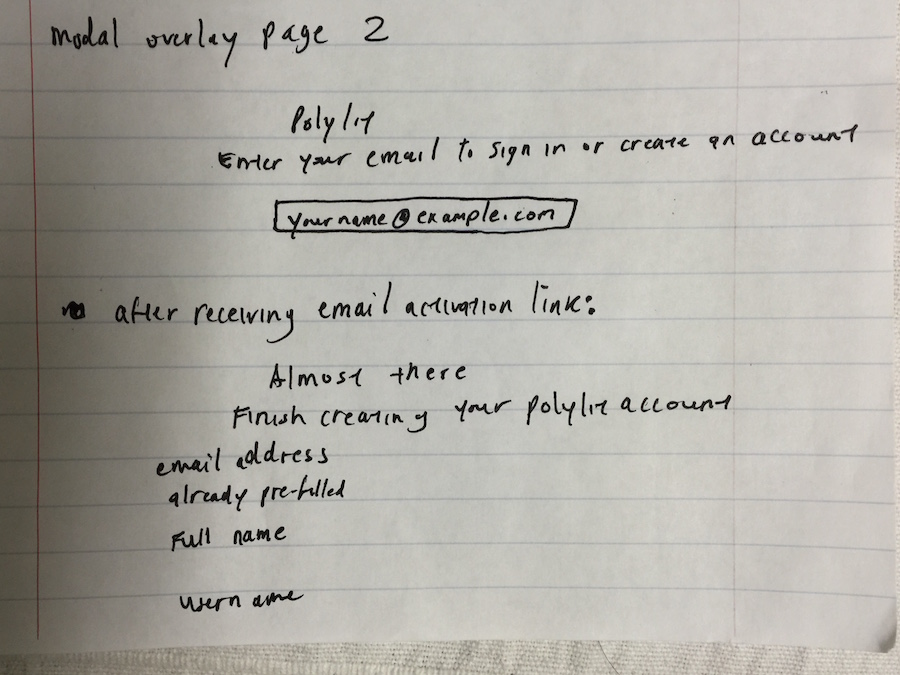 modal overlay page 2
Polylit
Enter your email to sign in or create an account
yourname@example.com
after receiving email activation link:
Almost there
Finish creating your polylit account
email address
already pre-filled
Full name
username